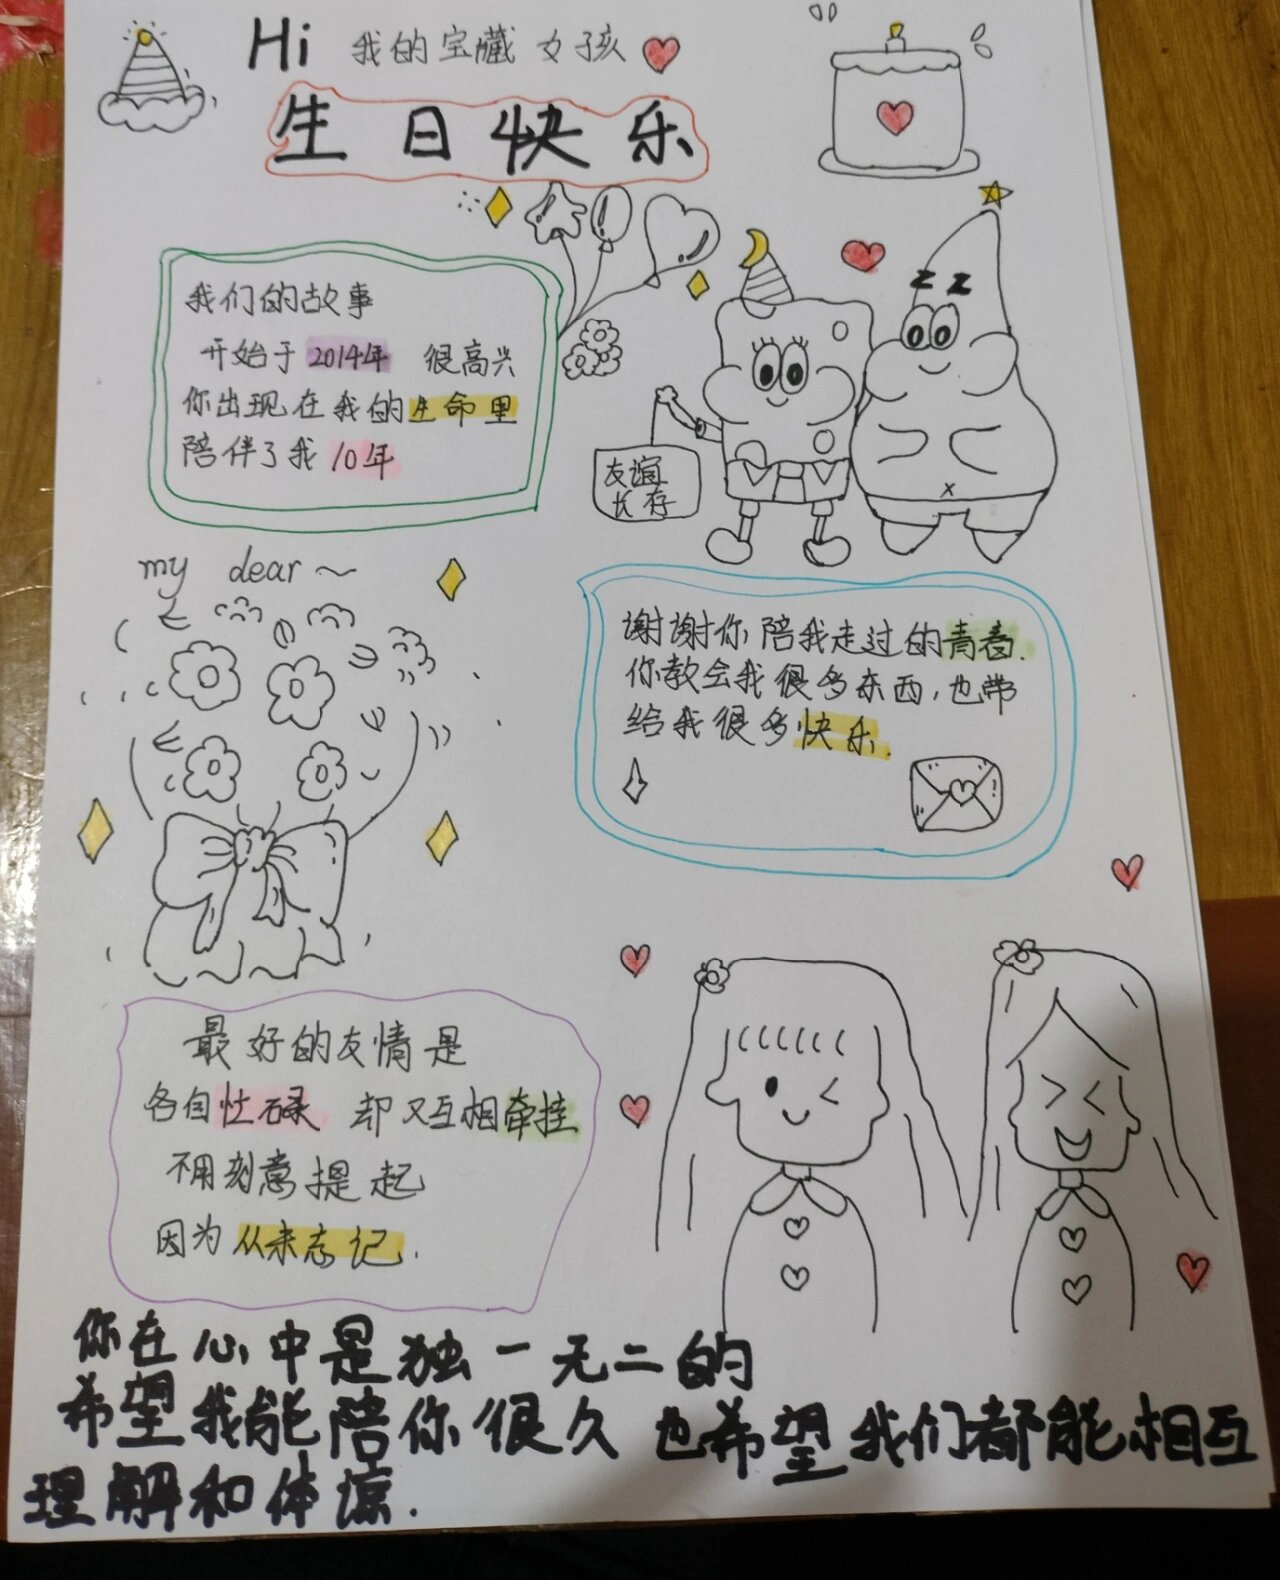 Hi 我的宝藏女孩
生日快乐
我们的故事
开始于2014年 很高兴
你出现在我的生命里
陪伴了我10年
友谊
长存
my dear~
谢谢你陪我走过的青春.
你教会我很多东西,也带
给我很多快乐.
最好的友情是
各自忙碌 却又互相牵挂
不用刻意提起
因为从未忘记.
你在心中是独一无二的
希望我能陪你很久 也希望我们都能相互
理解和体谅.